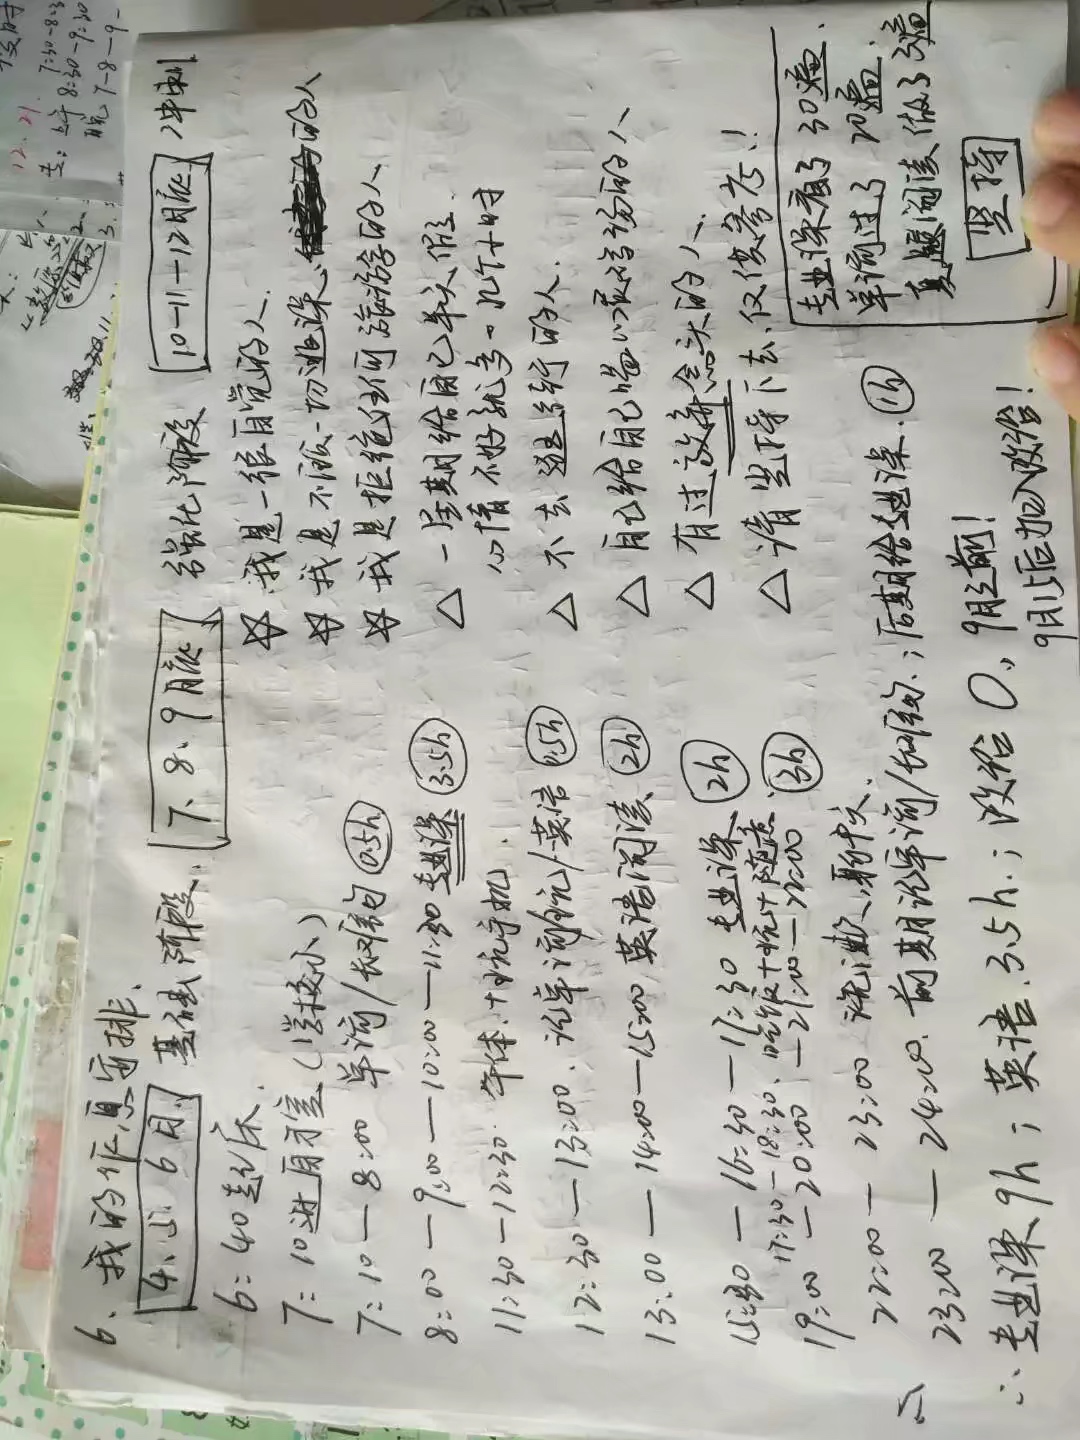 6、我的作息安排、
4、5、6月 基础阶段、 7、8、9月底 强化阶段 10-11-12月底 冲刺
6:40起床.
7:10进自习室(学校小)
7:10—8:00 单词/长难句 0.5h
8:00—9:00—10:00—11:30专业课 3.5h
11:30-12:30 午休+玩手机.
12:30—13:00、记单词+玩/英语 0.5h
13:00—14:00—15:00 英语阅读 2h
15:30—16:30—17:30 专业课 2h
17:30-18:30、吃饭+玩+随意、
19:00—20:00—21:00—22:00 3h
22:00—23:00 洗漱、聊天.
23:00—24:00. 前期记单词/长难句.; 后期给专业课. 1h
∴ 专业课、9h; 英语.3.5h.; 政治 0., 9月之前!
9月15后加入政治!
☆ 我是一很自觉的人.
☆ 我是不贩一切逃课、的人
☆ 我是拒绝任何旅游的人
△ 一星期给自己半天假.
心情不好就多一几个小时
△ 不去逛街的人.
△ 自己给自己鼓励的人
△ 有过放弃念头的人、
△ 请坚持下去.仅供参考!
专业课看了30遍.
单词过了20遍.
真题阅读做了3遍
坚持
12.21.
7:30-8:3
8:30-9:30
晚 7-8-9-